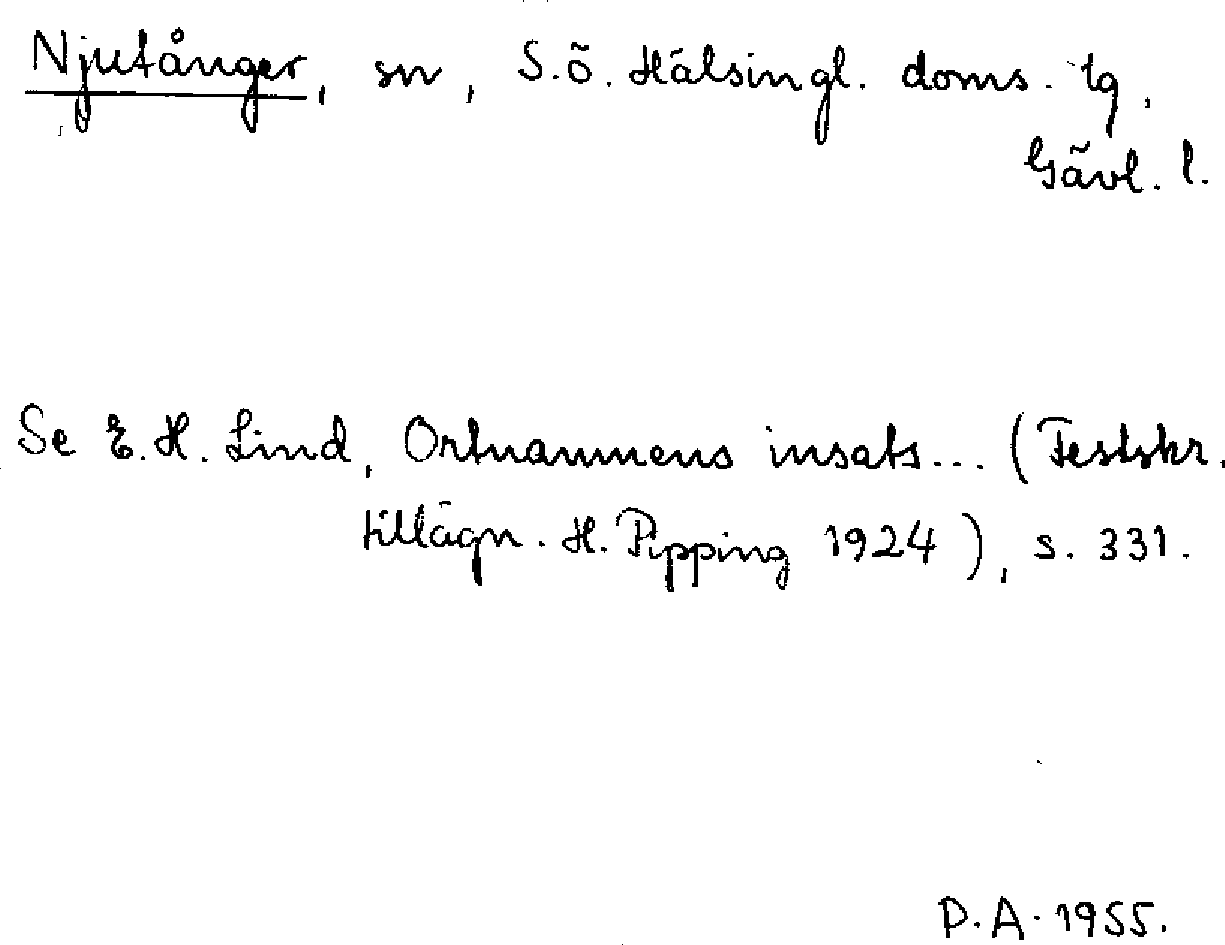 Njutånger, sn, S.ö. Hälsingl. doms. tg,
Gävl. l.
Se E.H. Lind, Ortnamnens insats... (Festskr.
tillägn. H. Pipping 1924), s. 331.
P.A. 1955.